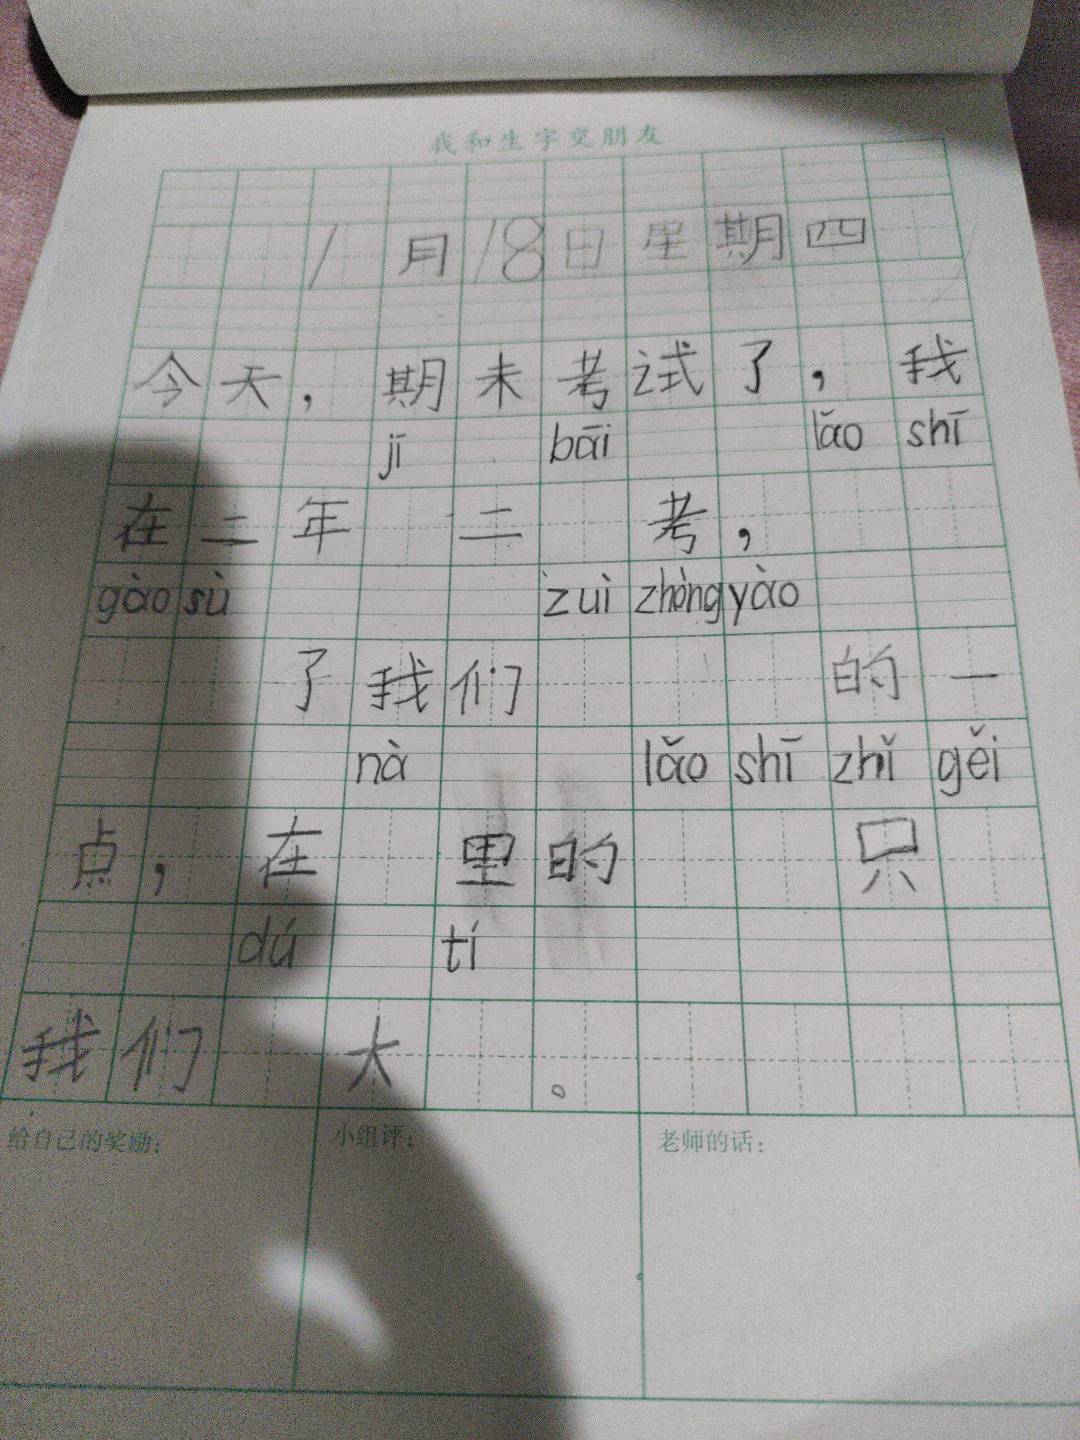 我和生字交朋友
1月18日星期四
今天，期末考试了，我
jī bāi lǎo shī
在二年 二 考，
gào sù zuì zhòng yào
了我们 的一
nà lǎo shī zhǐ gěi
点，在 里的 只
dú tí
我们 大 。
给自己的奖励： 小组评： 老师的话：